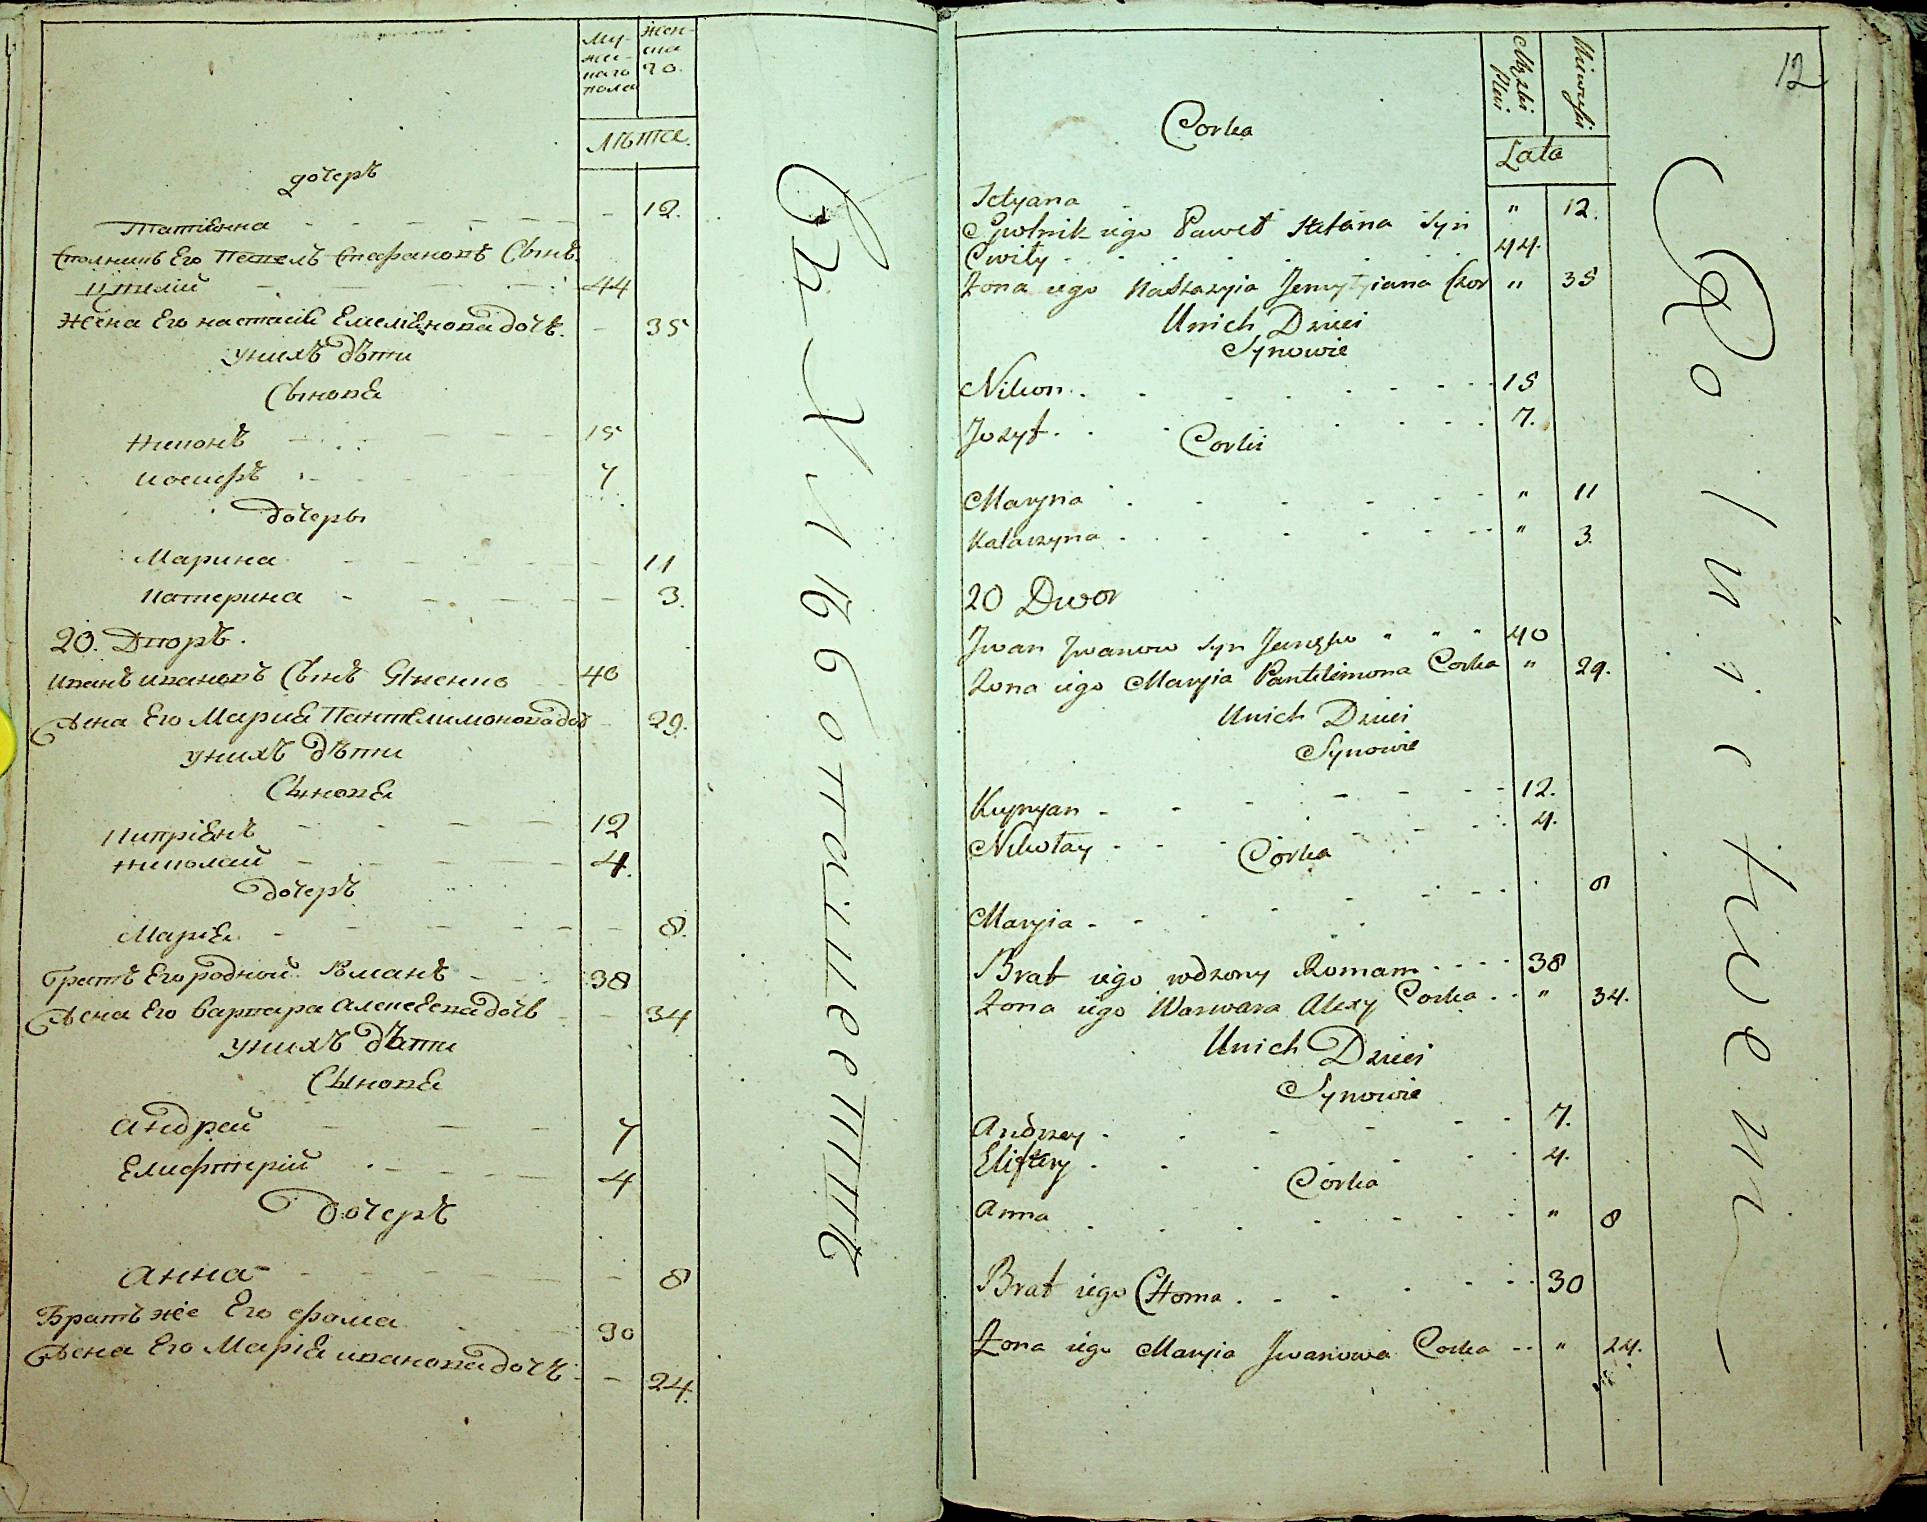 Му-
жес-
каго
пола
Жен-
ска
го.
Лѣта
дочерь
Татіяна - - - - - - 12.
Спольникъ Его Павелъ Стефановъ Сынъ
Цвилій - - - 44
Жена Его настасія Емеліянова дочь. - 35
унихъ дѣти
Сыновя
Никонъ - - - 15
иосифъ - - - 7
дочеры
Марина - - - 11
Катерина - - - 3.
20. Дворъ.
иванъ ивановъ Сынъ Яненко 40
Жена Его Марія Пантелимонова доч - 29.
унихъ дѣти
Сыновя
Кипріянъ - - - 12
николай - - - 4.
дочерь
Марія - - - 8.
братъ Его родной Романъ - - 38
Жена Его варвара алексеева дочь - - 34
унихъ дѣти
Сыновя
андрей - - - 7
Елифтерій - - - 4
дочерь
анна - - - 8
Братъ же Его фома 30
Жена Его Марія иванова дочь - - 24.
Въ Хлѣбопашествѣ
12
Męzki
Płci
Niewieści
Lata
Corka
Tetyana - " 12.
Spolnik iego Paweł Stefana Syn
Cwiły - - - 44.
Zona iego Nastazyia Jemylyiana Cor " 35
Unich Dzieci
Synowie
Nikon - - - 15
Jozyf - - - 7.
Corki
Maryna - - - " 11
Katarzyna - - - " 3.
20 Dwor
Jwan Jwanow Syn Janęko " " " 40
Zona iego Maryia Pantelimona Corka " 29.
Unich Dzieci
Synowie
Kupryan - - - 12.
Nikołay - - - 4.
Corka
Maryia - - - 8
Brat iego rodzony Romam - - - 38
Zona iego Warwara Alexy Corka - - " 34.
Unich Dzieci
Synowie
Andrzey - - - 7.
Eliftery - - - 4.
Corka
Anna - - - " 8
Brat iego Choma - - - 30
Zona iego Maryia Jwanowa Corka - - " 24.
Rolnictwem